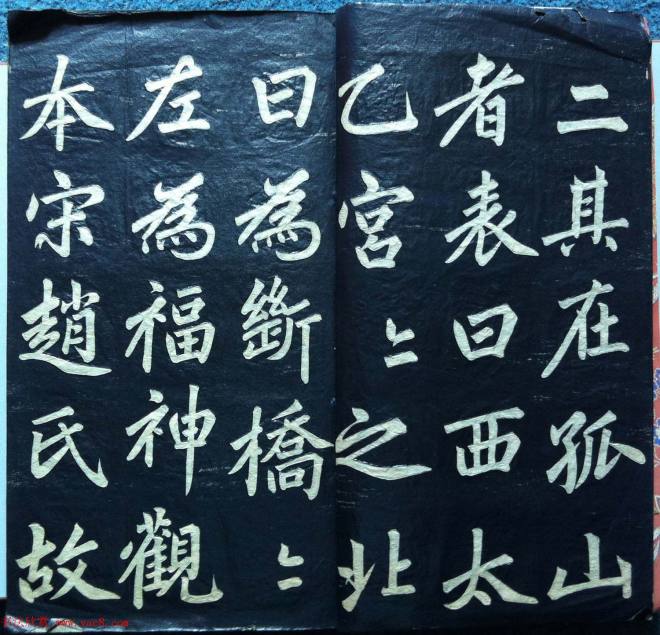 二其在孤山
者表曰西太
乙宮〻之北
曰為斷橋〻
左為福神觀
本宋趙氏故
www.yac8.com